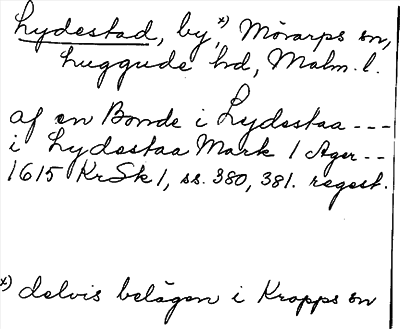 Lydestad, by,*) Mörarps sn,
Luggude hd, Malm. l.
af en Bonde i Lydestaa ---
i Lydestaa Mark 1 Ager --
1615 KrSk 1, ss. 380, 381. regest.
*) delvis belägen i Kropps sn